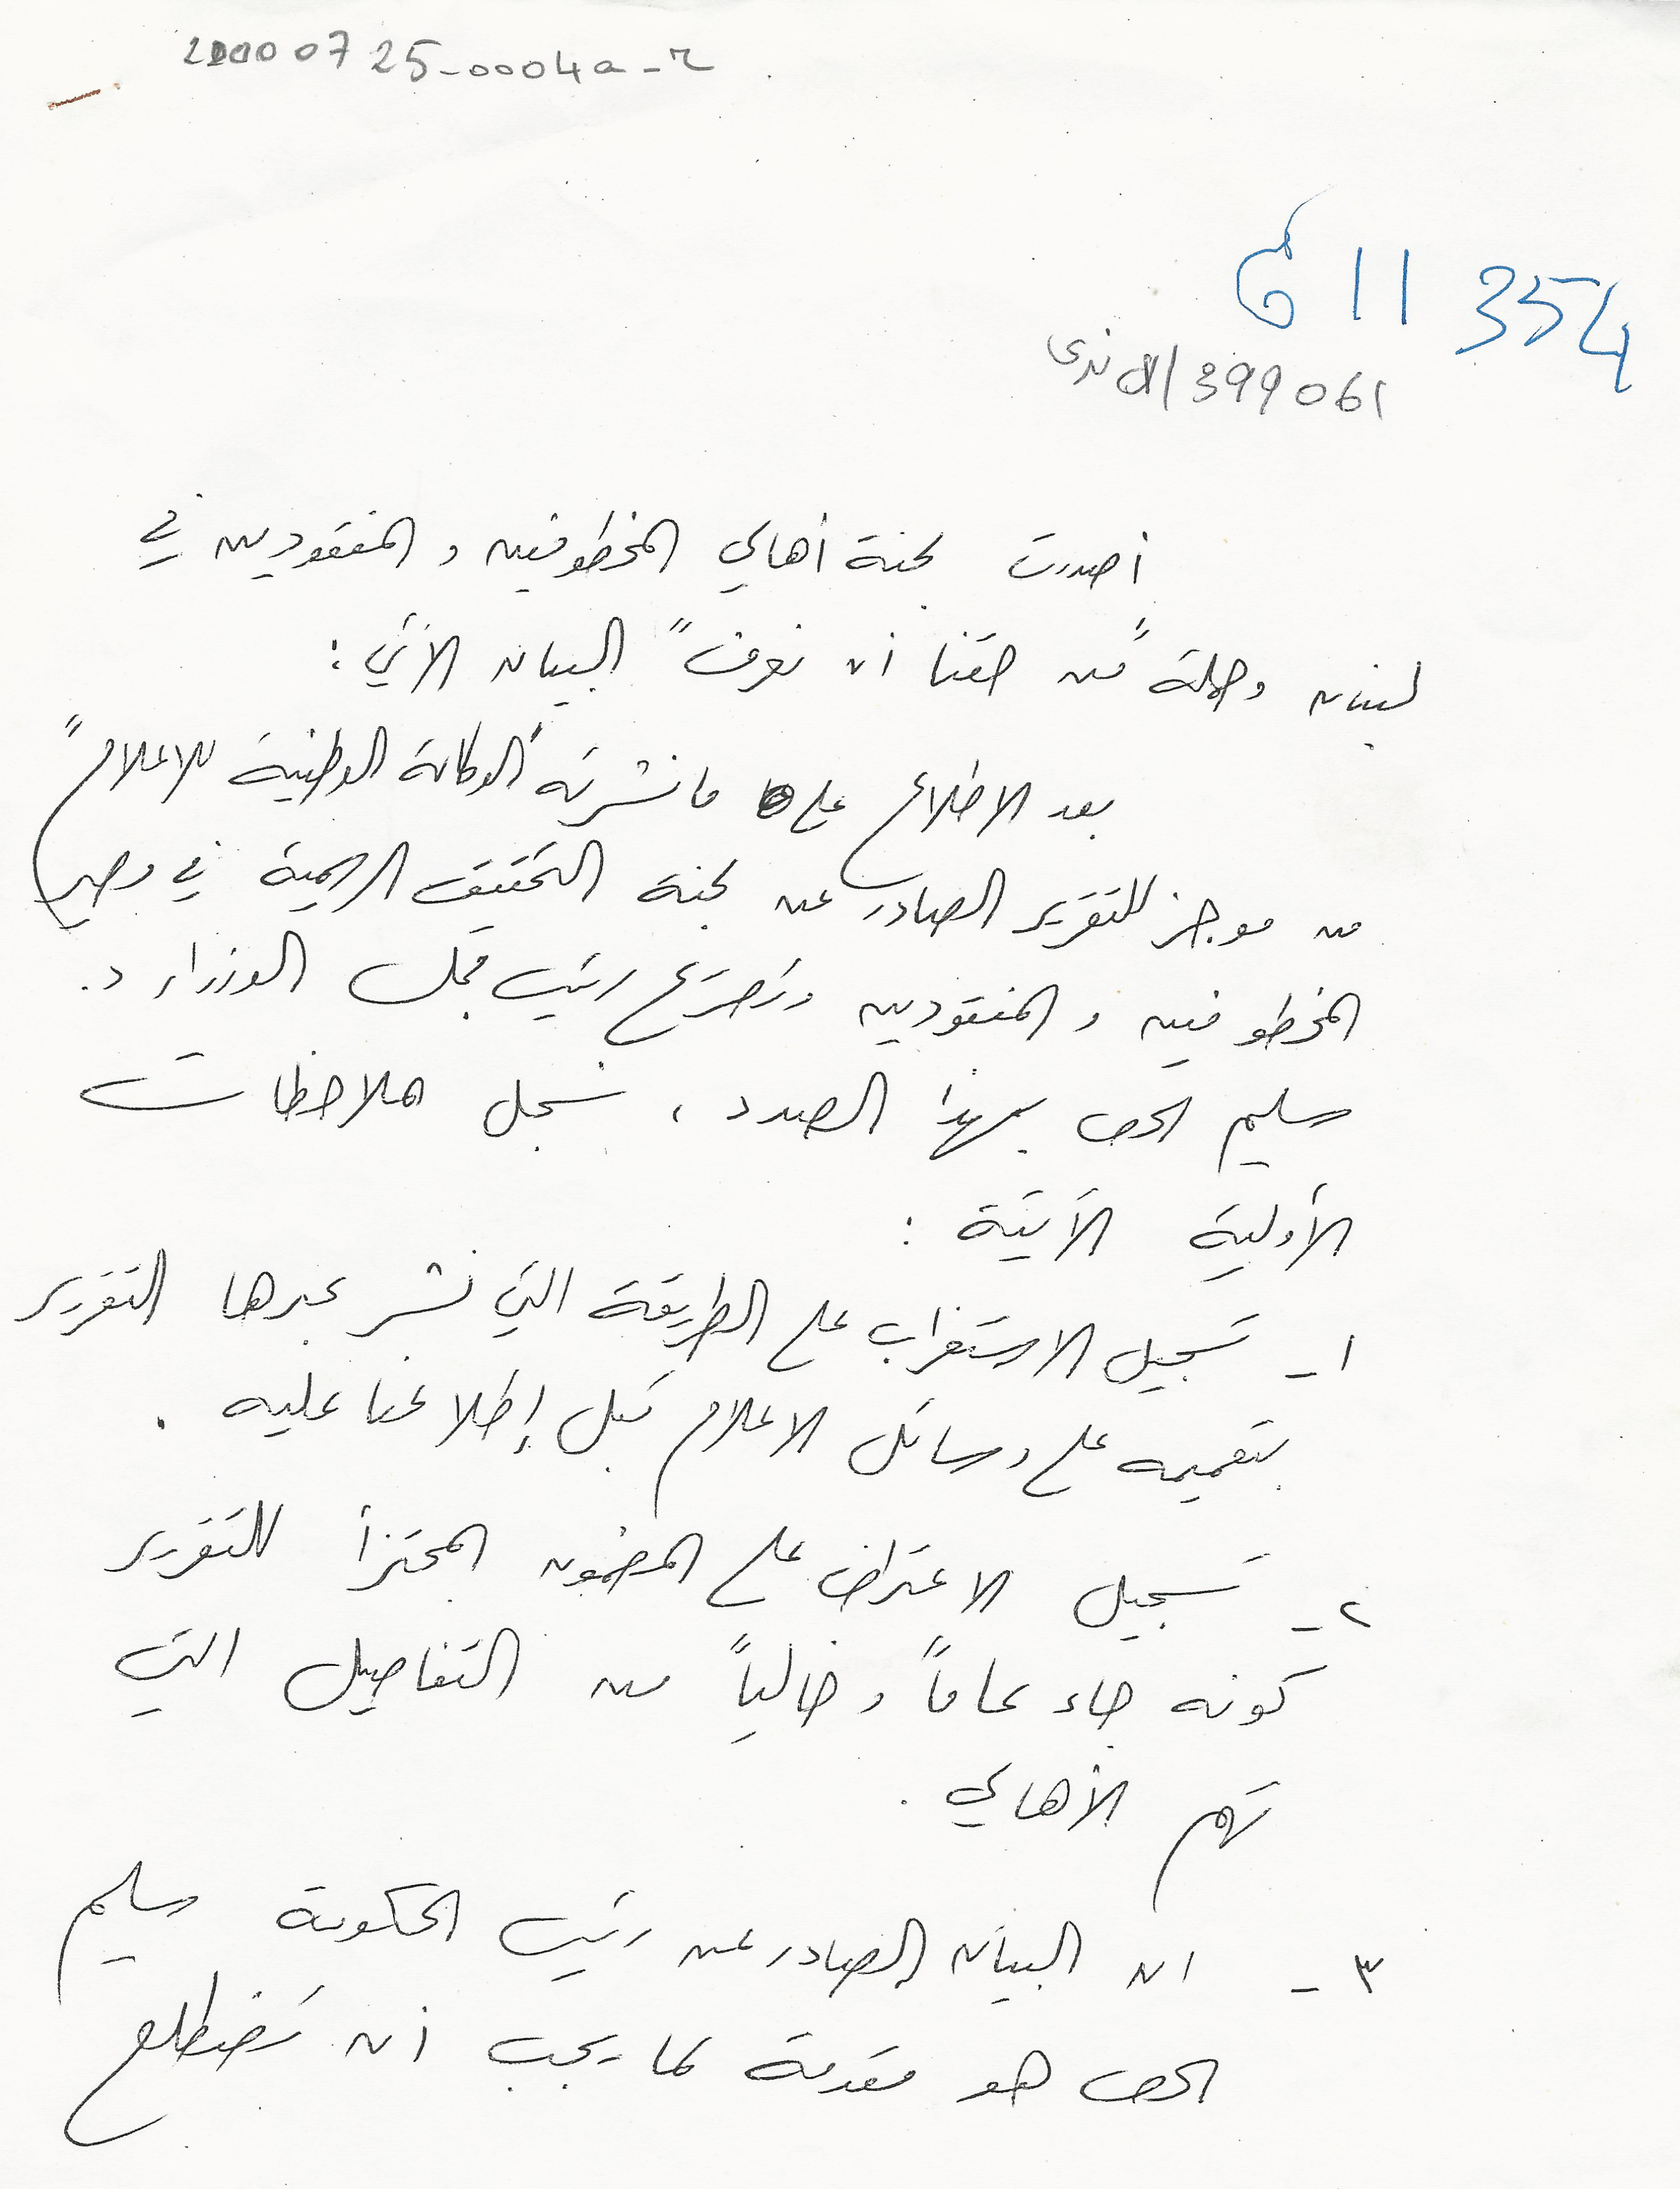 20000725-0004a-r
611354
01/399061 ندى
أصدرت لجنة أهالي المخطوفين و المفقودين في
لبنان وحملة "من حقنا أن نعرف" البيان الآتي:
بعد الاطلاع على ما نشرته "الوكالة الوطنية للاعلام"
من موجز للتقرير الصادر عن لجنة التحقيق الرسمية في مصير
المخطوفين و المفقودين وتصريح رئيس مجلس الوزراء د.
سليم الحص بهذا الصدد، نسجل ملاحظات
الأولية الآتية:
١- تسجيل الاستغراب على الطريقة التي نشر عبرها التقرير
بتعميمه على وسائل الاعلام قبل إطلاعنا عليه.
٢- تسجيل الاعتراض على المضمون المجتزأ للتقرير
كونه جاء عاماً و خالياً من التفاصيل التي
تهم الأهالي.
٣- ان البيان الصادر عن رئيس الحكومة سليم
الحص هو مقدمة لما يجب أن تضطلع